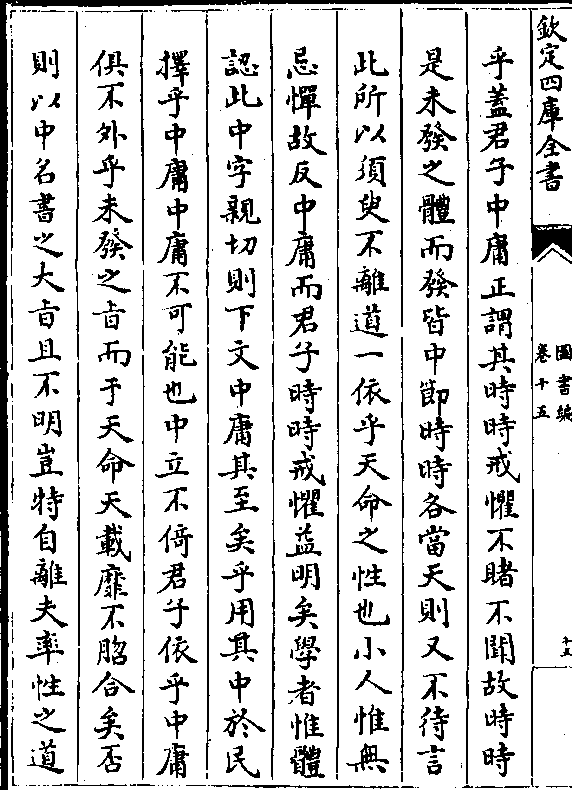 欽定四庫全書
圖書編
卷十五
十五
乎蓋君子中庸正謂其時時戒懼不睹不聞故時時
是未發之體而發皆中節時時各當天則又不待言
此所以須臾不離道一依乎天命之性也小人惟無
忌憚故反中庸而君子時時戒懼益明矣學者惟體
認此中字親切則下文中庸其至矣乎用其中於民
擇乎中庸中庸不可能也中立不倚君子依乎中庸
俱不外乎未發之㫖而于天命天載靡不脗合矣否
則以中名書之大㫖且不明豈特自離夫率性之道